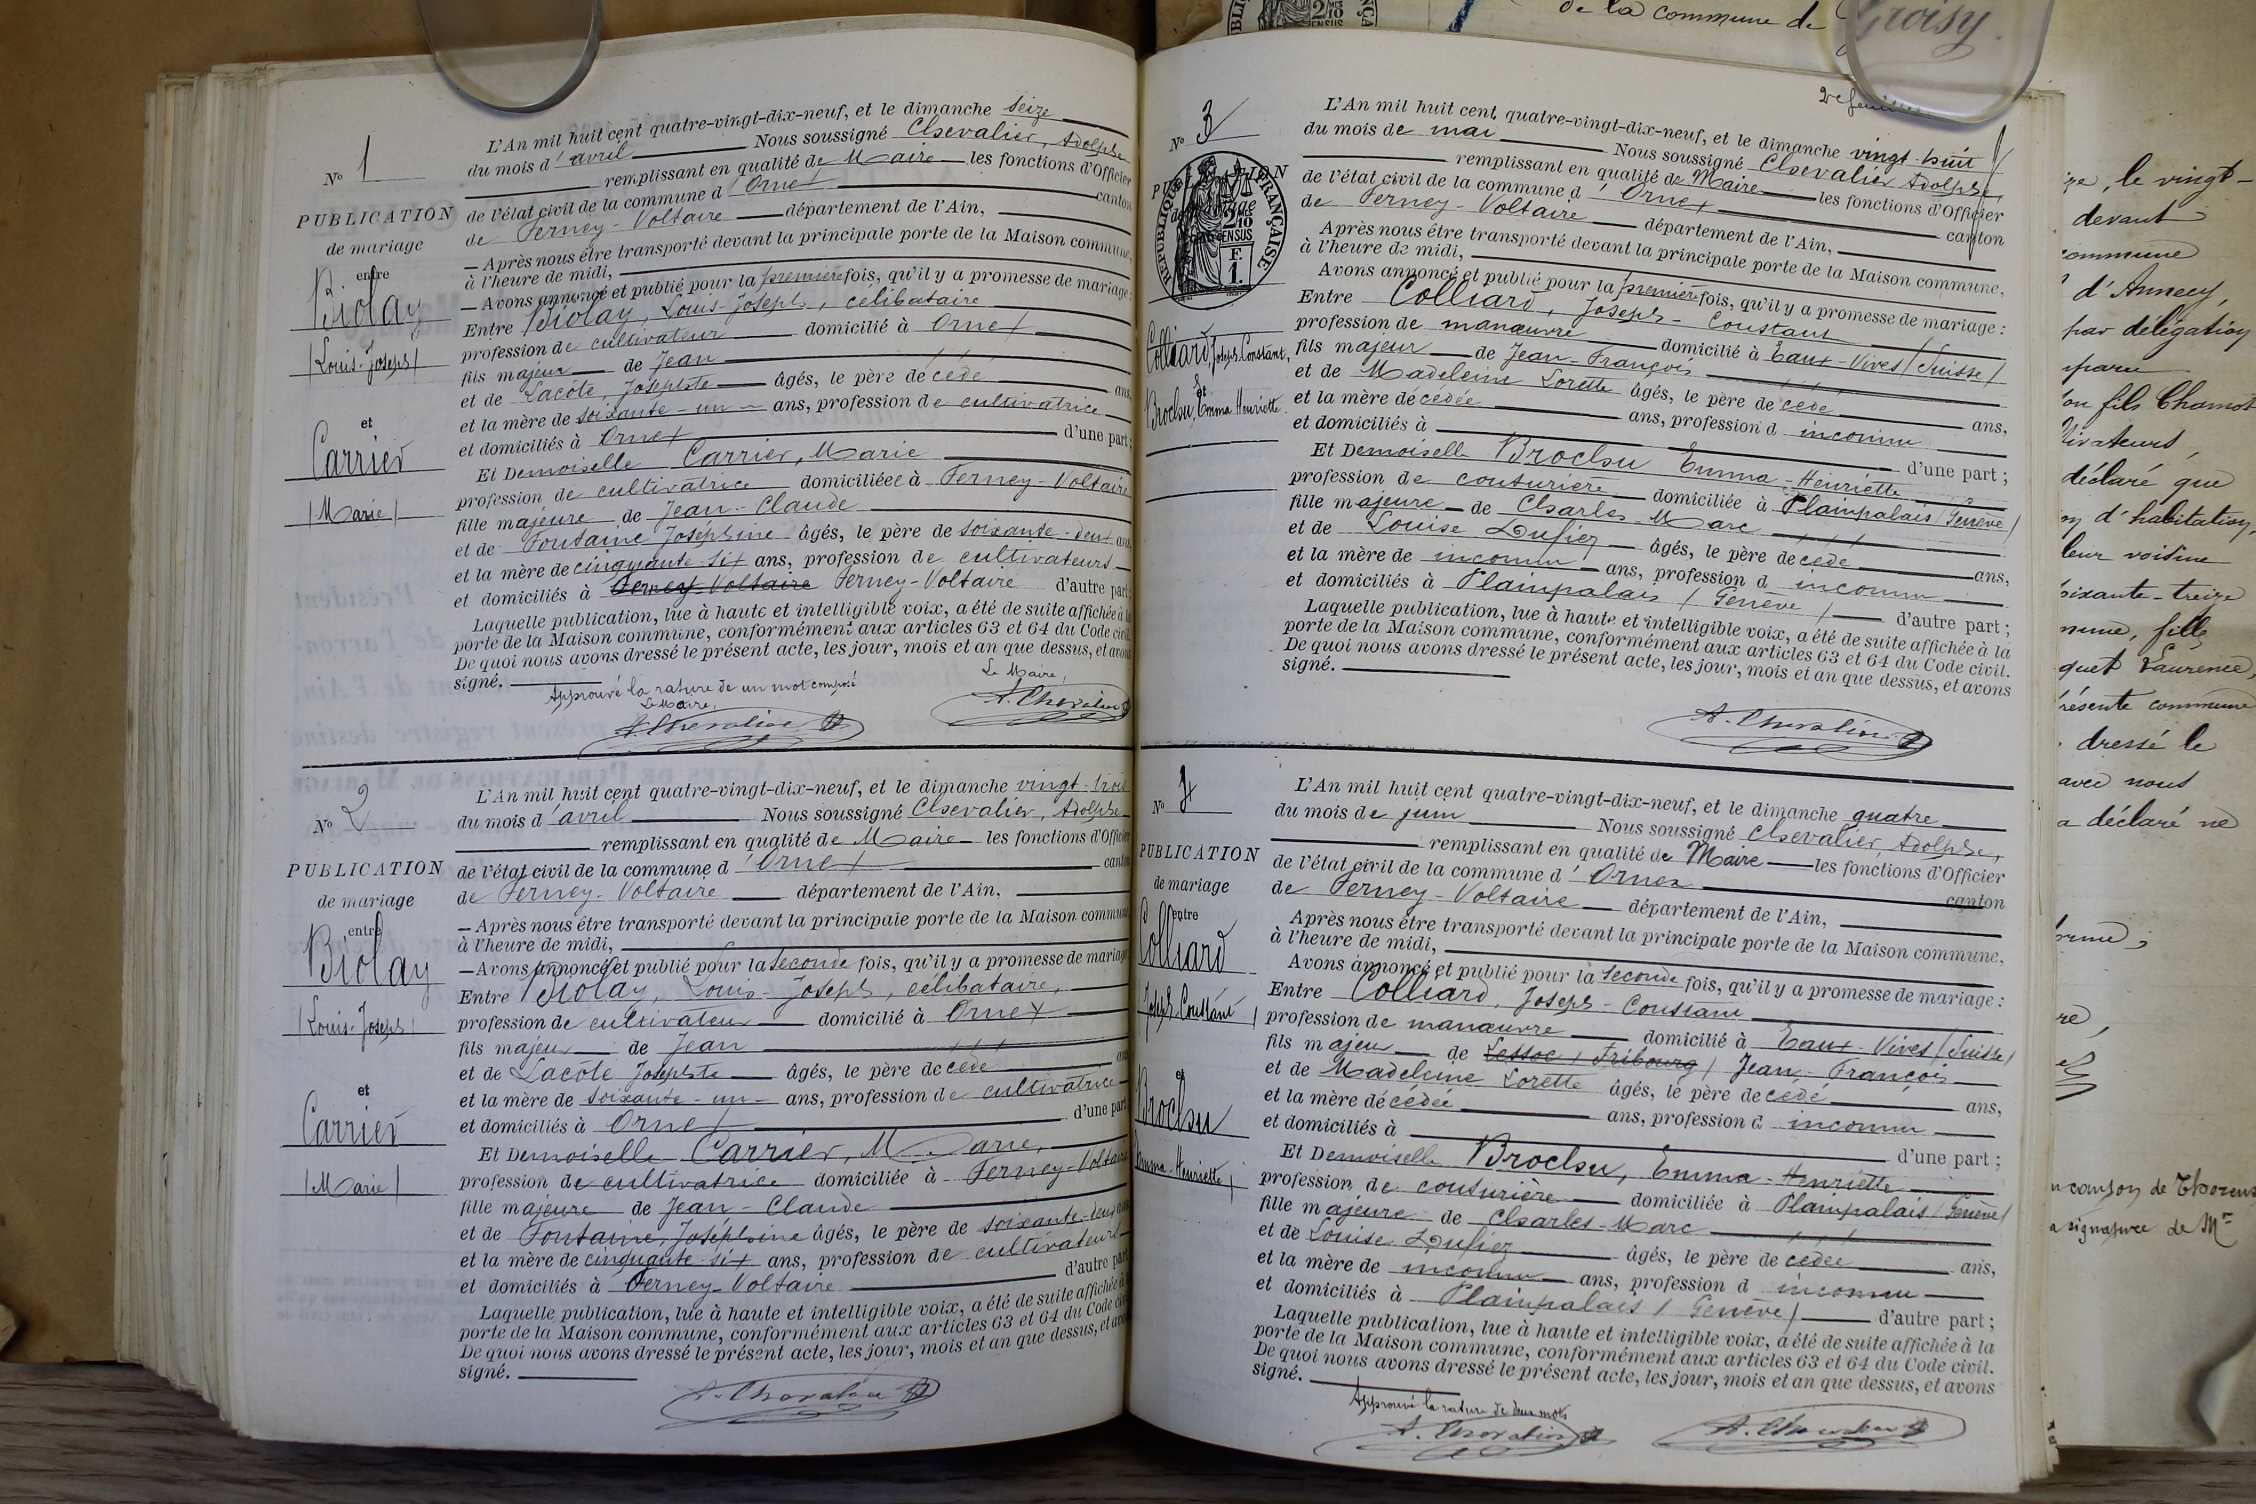 N° 1
PUBLICATION
de mariage
entre
Biolay
(Louis-Joseph)
et
Carrier
(Marie)
L'An mil huit cent quatre-vingt-dix-neuf, et le dimanche seize
du mois d'avril Nous soussigné Chevalier, Adolphe
remplissant en qualité de Maire les fonctions d'Officier
de l'état civil de la commune d'Ornex canton
de Ferney-Voltaire département de l'Ain,
— Après nous être transporté devant la principale porte de la Maison commune,
à l'heure de midi,
— Avons annoncé et publié pour la première fois, qu'il y a promesse de mariage :
Entre Biolay, Louis-Joseph, célibataire
profession de cultivateur domicilié à Ornex
fils majeur de Jean
et de Lacôte Josephte âgés, le père décédé ans,
et la mère de soixante-un ans, profession de cultivatrice
et domiciliés à Ornex d'une part ;
Et Demoiselle Carrier, Marie
profession de cultivatrice domiciliée à Ferney-Voltaire
fille majeure de Jean-Claude
et de Fontaine Joséphine âgés, le père de soixante-deux ans
et la mère de cinquante-six ans, profession de cultivateurs
et domiciliés à Ferney-Voltaire Ferney-Voltaire d'autre part
Laquelle publication, lue à haute et intelligible voix, a été de suite affichée à la
porte de la Maison commune, conformément aux articles 63 et 64 du Code civil.
De quoi nous avons dressé le présent acte, les jour, mois et an que dessus, et avons
signé.
Approuvé la rature de un mot composé
Le Maire,
A. Chevalier
Le Maire,
A. Chevalier
N° 2
PUBLICATION
de mariage
entre
Biolay
(Louis-Joseph)
et
Carrier
(Marie)
L'An mil huit cent quatre-vingt-dix-neuf, et le dimanche vingt-trois
du mois d'avril Nous soussigné Chevalier, Adolphe
remplissant en qualité de Maire les fonctions d'Officier
de l'état civil de la commune d'Ornex canton
de Ferney-Voltaire département de l'Ain,
— Après nous être transporté devant la principale porte de la Maison commune
à l'heure de midi,
— Avons annoncé et publié pour la seconde fois, qu'il y a promesse de mariage
Entre Biolay, Louis-Joseph, célibataire,
profession de cultivateur domicilié à Ornex
fils majeur de Jean
et de Lacôte Josephte âgés, le père décédé ans
et la mère de soixante-un ans, profession de cultivatrice
et domiciliés à Ornex d'une part
Et Demoiselle Carrier, Marie,
profession de cultivatrice domiciliée à Ferney-Voltaire
fille majeure de Jean-Claude
et de Fontaine, Joséphine âgés, le père de soixante-deux ans
et la mère de cinquante-six ans, profession de cultivateurs
et domiciliés à Ferney-Voltaire d'autre part
Laquelle publication, lue à haute et intelligible voix, a été de suite affichée à
porte de la Maison commune, conformément aux articles 63 et 64 du Code civ
De quoi nous avons dressé le présent acte, les jour, mois et an que dessus, et avo
signé.
A. Chevalier
N° 3
RÉPUBLIQUE FRANÇAISE
2 MES
10
EN SUS
F.
1.
Colliard, Joseph Constant,
et
Brochu, Emma Henriette
L'An mil huit cent quatre-vingt-dix-neuf, et le dimanche vingt-huit
du mois de mai Nous soussigné Chevalier Adolphe,
remplissant en qualité de Maire les fonctions d'Officier
de l'état civil de la commune d'Ornex canton
de Ferney-Voltaire département de l'Ain,
Après nous être transporté devant la principale porte de la Maison commune,
à l'heure de midi,
Avons annoncé et publié pour la première fois, qu'il y a promesse de mariage :
Entre Colliard, Joseph-Constant
profession de manœuvre domicilié à Eaux-Vives (Suisse)
fils majeur de Jean-François
et de Madeleine Lorette âgés, le père décédé
et la mère décédée ans, profession d inconnu ans,
et domiciliés à d'une part ;
Et Demoiselle Brochu Emma-Henriette
profession de couturière domiciliée à Plainpalais (Genève)
fille majeure de Charles-Marc
et de Louise Dufiez âgés, le père décédé ans,
et la mère de inconnu ans, profession d inconnu
et domiciliés à Plainpalais (Genève) d'autre part ;
Laquelle publication, lue à haute et intelligible voix, a été de suite affichée à la
porte de la Maison commune, conformément aux articles 63 et 64 du Code civil.
De quoi nous avons dressé le présent acte, les jour, mois et an que dessus, et avons
signé.
A. Chevalier
N° 4
PUBLICATION
de mariage
entre
Colliard
Joseph-Constant)
et
Brochu
Emma-Henriette)
L'An mil huit cent quatre-vingt-dix-neuf, et le dimanche quatre
du mois de juin Nous soussigné Chevalier, Adolphe,
remplissant en qualité de Maire les fonctions d'Officier
de l'état civil de la commune d'Ornex canton
de Ferney-Voltaire département de l'Ain,
Après nous être transporté devant la principale porte de la Maison commune,
à l'heure de midi,
Avons annoncé et publié pour la seconde fois, qu'il y a promesse de mariage :
Entre Colliard, Joseph-Constant
profession de manœuvre domicilié à Eaux-Vives (Suisse)
fils majeur de Lessoc (Fribourg) Jean-François
et de Madeleine Lorette âgés, le père décédé ans,
et la mère décédée ans, profession d inconnu
et domiciliés à d'une part ;
Et Demoiselle Brochu, Emma-Henriette
profession de couturière domiciliée à Plainpalais (Genève)
fille majeure de Charles-Marc
et de Louise Dufiez âgés, le père de cédée ans,
et la mère de inconnu ans, profession d inconnu
et domiciliés à Plainpalais (Genève) d'autre part ;
Laquelle publication, lue à haute et intelligible voix, a été de suite affichée à la
porte de la Maison commune, conformément aux articles 63 et 64 du Code civil.
De quoi nous avons dressé le présent acte, les jour, mois et an que dessus, et avons
signé.
Approuvé la rature de deux mots
A. Chevalier
A. Chevalier
de la commune de Groisy
le vingt-
devant
commune
d'Annecy,
par délégation
fils Chamot
déclaré que
d'habitation,
leur voisine
soixante-treize
fille
Laurence,
présente commune
dressé le
avec nous
a déclaré ne
canton de Thorens
signature de Mr